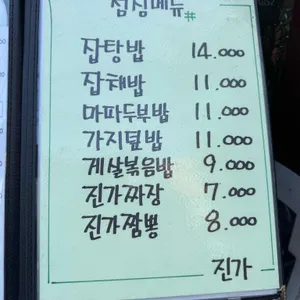 점심메뉴#
잡탕밥 14.000
잡채밥 11.000
마파두부밥 11.000
가지덮밥 11.000
게살볶음밥 9.000
진가짜장 7.000
진가짬뽕 8.000
진가